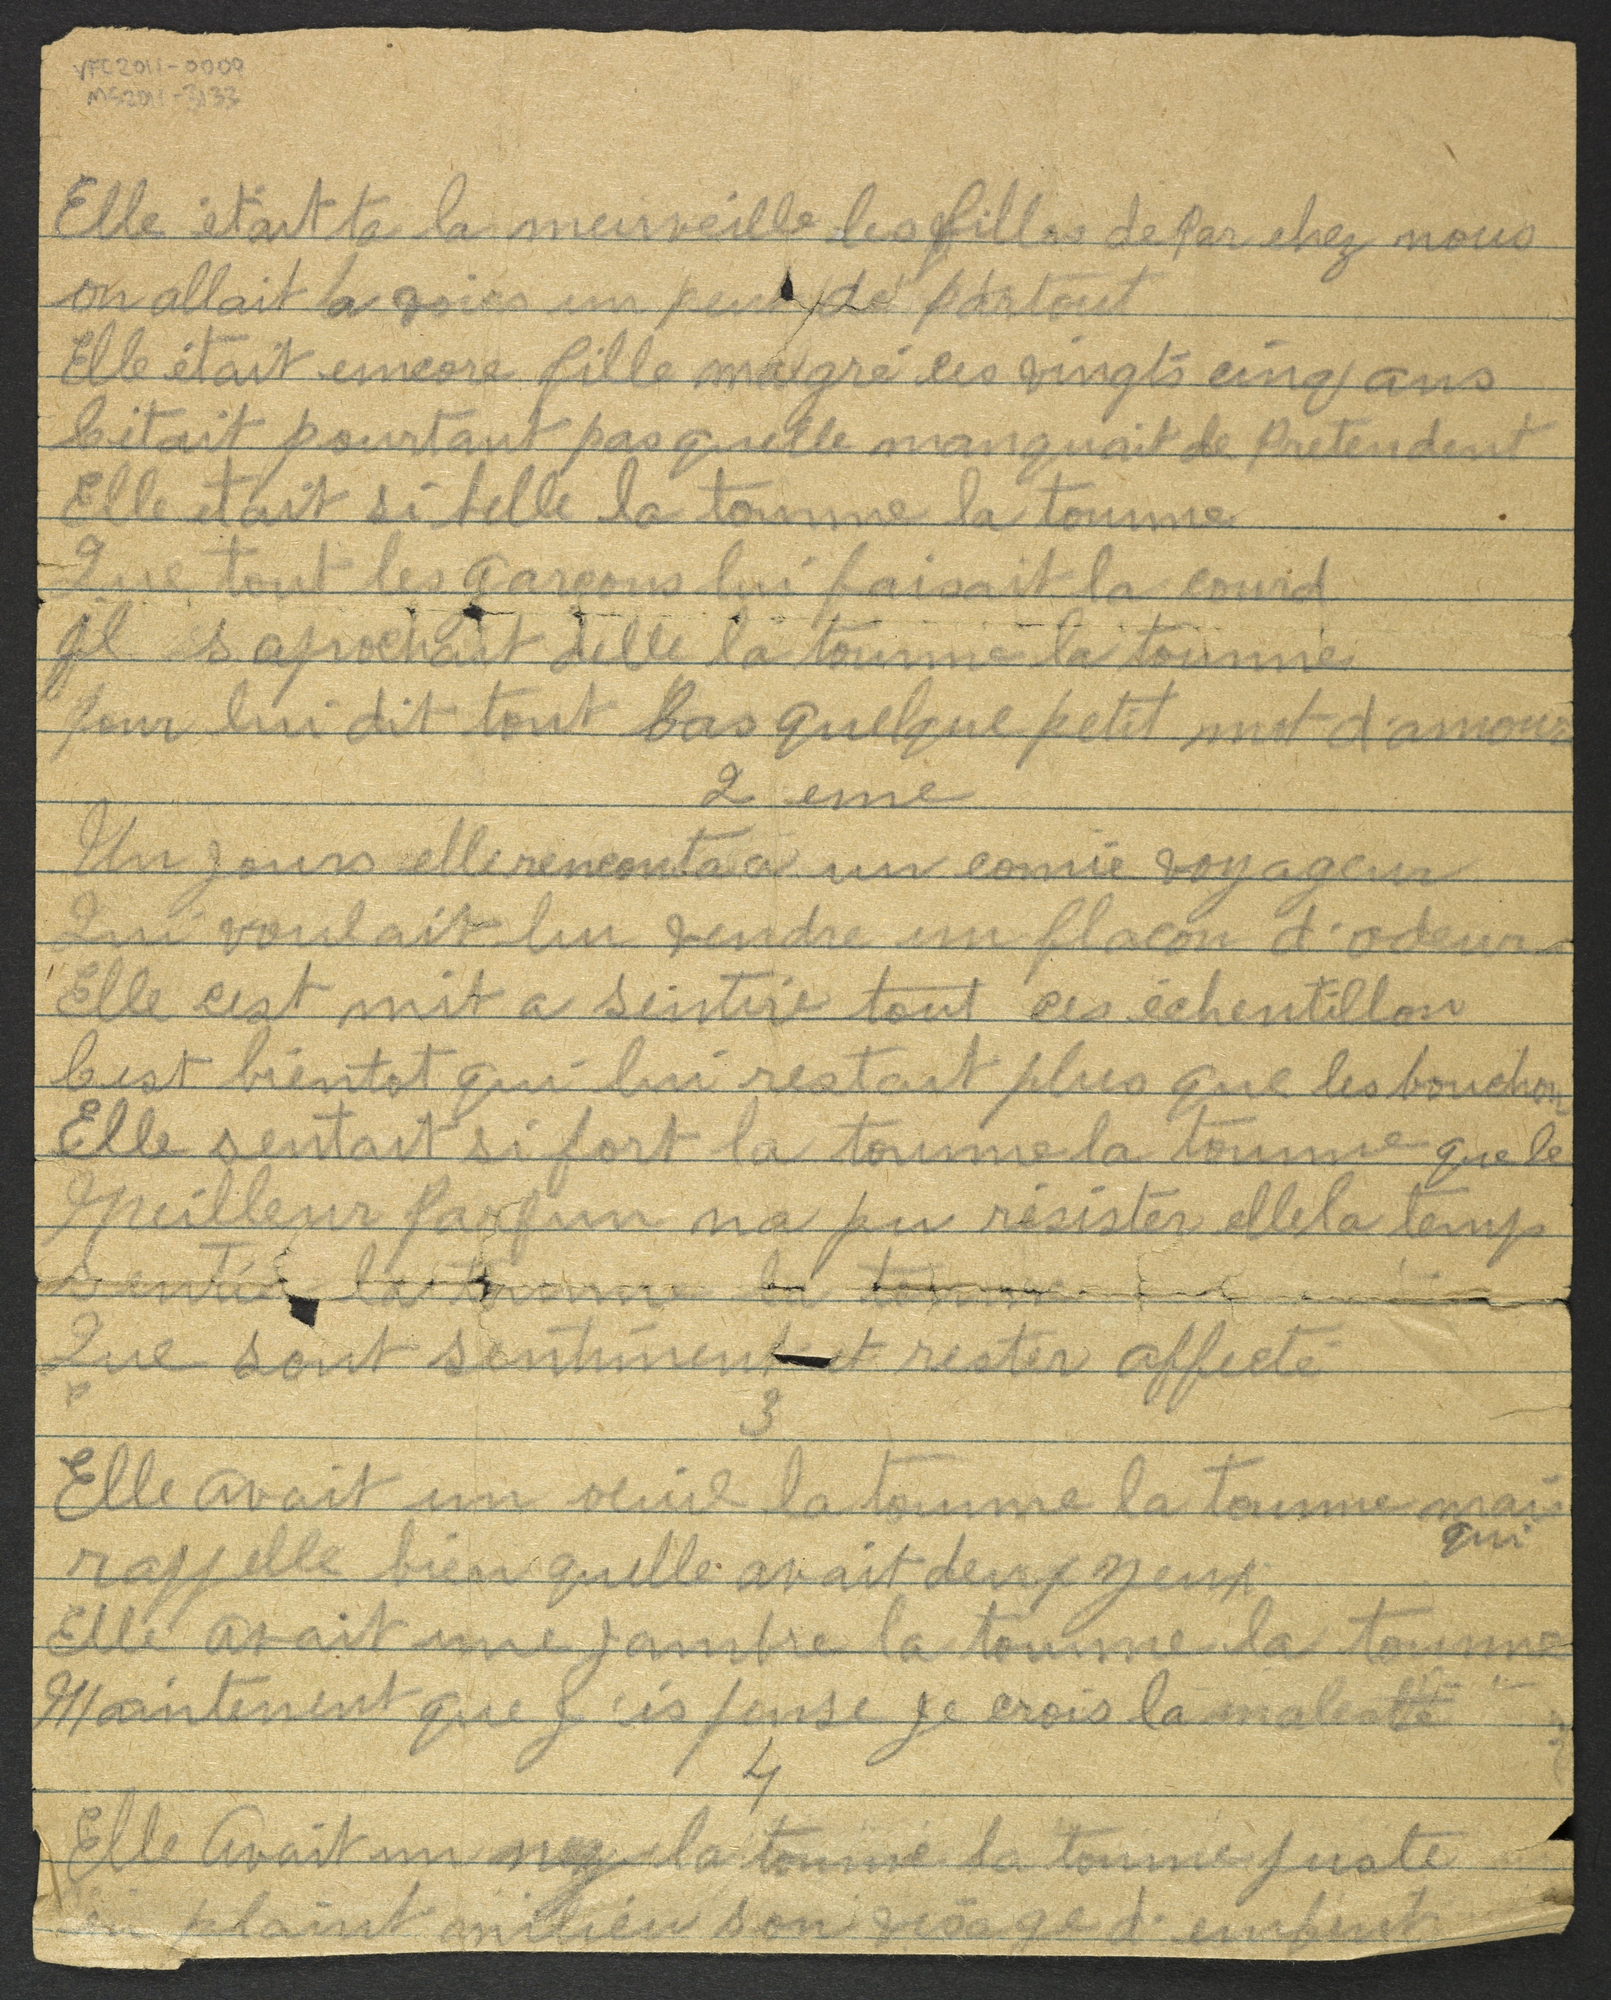 VFC2011-0009
MS2011-3133
Elle étaitta la meurveille les filles de Par chez nous
on allait la voier un peux de partout
Elle était emcore fille malgré ces vingts cinq ans
C'etait pourtant pas quelle manquait de Pretendent
Elle était si belle la toumme la toumme
Que tout les garcons lui faisait la courd
Il s aprochait delle la toumme la toumme
pour lui dit tout Bas quelque petit mot d'amour
2 eme
Un jours elle rencontra un comie voyageur
Qui voulait lui vendre un flacon d'odeurs
Elle cest mit a sentire tout ces échentillon
Cest bientot qui lui restait plus que les bouchon
Elle sentait si fort la toumme la toumme que le
Meilleur Parfum na pu résister elle la temp
sentie la toumme la toumme
Que sont sentiment et rester affecté
3
Elle avait un oeuil la toumme la toumme mais
qui
rappelle bien quelle avait deux yeux
Elle avait une jambre la toumme la toumme
Maintenent que j'is pense je crois la
4
Elle Avait un nez la toumme la toumme juste
en plaint milieu son visage d'enfent